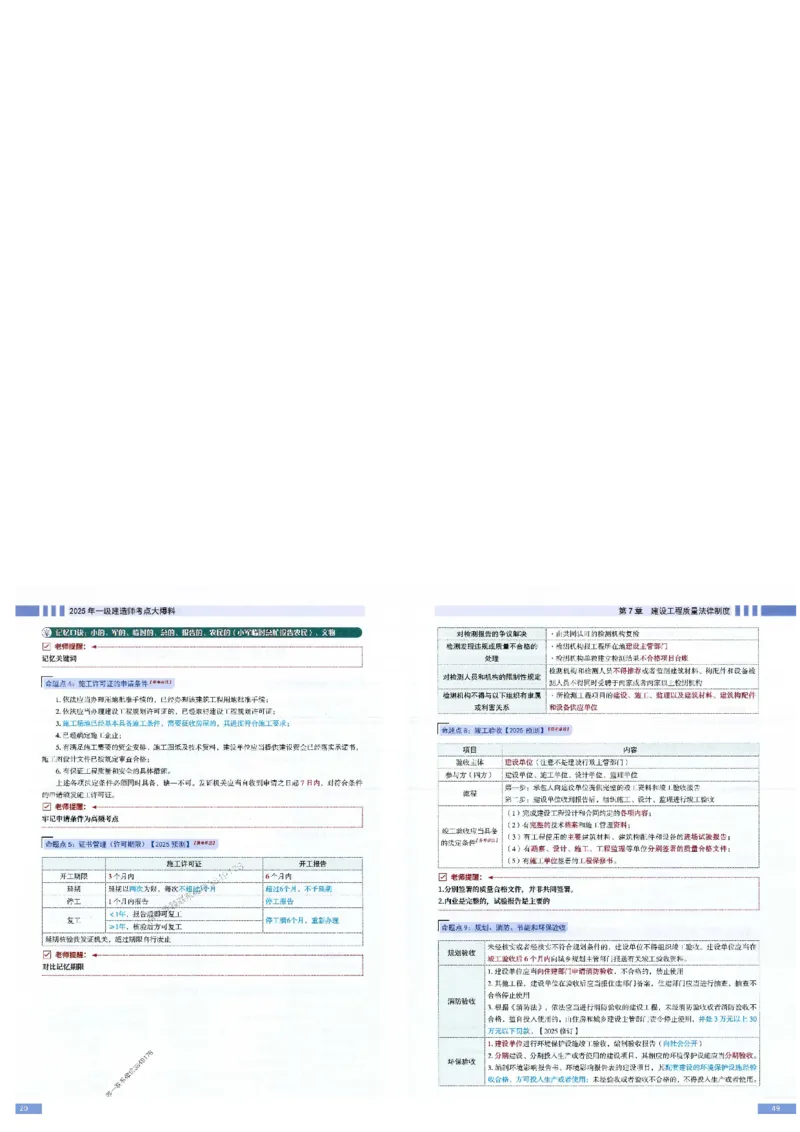 2025 年一级建造师考点大爆料
记忆口诀：小的、军的、临时的、急的、报告的、农民的（小军临时急忙报告农民）、文物
老师提醒：
记忆关键词
命题点 4：施工许可证的申请条件
1. 依法应当办理用地批准手续的，已经办理该建筑工程用地批准手续；
2. 依法应当办理建设工程规划许可证的，已经取得建设工程规划许可证；
3. 施工场地已经基本具备施工条件，需要征收房屋的，其进度符合施工要求；
4. 已经确定施工企业；
5. 有满足施工需要的资金安排、施工图纸及技术资料，建设单位应当提供建设资金已经落实承诺书，
施工图设计文件已按规定审查合格；
6. 有保证工程质量和安全的具体措施。
上述各项法定条件必须同时具备，缺一不可。发证机关应当自收到申请之日起 7 日内，对符合条件
的申请颁发施工许可证。
老师提醒：
牢记申请条件为高频考点
命题点 5：证书管理（许可期限）【2025 预测】
施工许可证 开工报告
开工期限 3 个月内 6 个月内
延期 延期以两次为限，每次不超过3个月 超过6个月，不予延期
停工 1 个月内报告 停工报告
复工 ＜1年，报告后即可复工 停工满6个月，重新办理
≥1年，核验后方可复工
延期核验找发证机关，超过期限自行废止
老师提醒：
对比记忆期限
20
第 7 章 建设工程质量法律制度
对检测报告的争议解决 · 由共同认可的检测机构复检
检测发现违规或质量不合格的处理 · 检测机构报工程所在地建设主管部门
· 检测机构单独建立检测结果不合格项目台账
对检测人员和机构的限制性规定 检测机构和检测人员不得推荐或者监制建筑材料、构配件和设备检
测人员不得同时受聘于两家或者两家以上检测机构
检测机构不得与以下组织有隶属或利害关系 · 所检测工程项目的建设、施工、监理以及建筑材料、建筑构配件
和设备供应单位
命题点 8：竣工验收【2025 预测】
项目 内容
验收主体 建设单位（注意不是建设行政主管部门）
参与方（四方） 建设单位、施工单位、设计单位、监理单位
流程 第一步：承包人向建设单位提供完整的竣工资料和竣工验收报告
第二步：建设单位收到报告后，组织施工、设计、监理进行竣工验收
竣工验收应当具备的法定条件 （1）完成建设工程设计和合同约定的各项内容；
（2）有完整的技术档案和施工管理资料；
（3）有工程使用的主要建筑材料、建筑构配件和设备的进场试验报告；
（4）有勘察、设计、施工、工程监理等单位分别签署的质量合格文件；
（5）有施工单位签署的工程保修书。
老师提醒：
1.分别签署的质量合格文件，并非共同签署。
2.内业是完整的，试验报告是主要的
命题点 9：规划、消防、节能和环保验收
规划验收 未经核实或者经核实不符合规划条件的，建设单位不得组织竣工验收。建设单位应当在
竣工验收后 6 个月内向城乡规划主管部门报送有关竣工验收资料。
消防验收 1. 建设单位应当向住建部门申请消防验收，不合格的，禁止使用
2. 其他工程，建设单位在验收后应当报住建部门备案，住建部门应当进行抽查，抽查不
合格停止使用
3. 根据《消防法》，依法应当进行消防验收的建设工程，未经消防验收或者消防验收不
合格，擅自投入使用的，由住房和城乡建设主管部门责令停止使用，并处 3 万元以上 30
万元以下罚款。【2025 修订】
环保验收 1. 建设单位进行环境保护设施竣工验收，编制验收报告（向社会公开）
2. 分期建设、分期投入生产或者使用的建设项目，其相应的环境保护设施应当分期验收。
3. 编制环境影响报告书、环境影响报告表的建设项目，其配套建设的环境保护设施经验
收合格，方可投入生产或者使用；未经验收或者验收不合格的，不得投入生产或者使用。
49